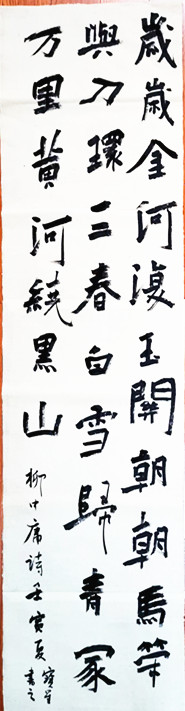 歲歲金河復玉關朝朝馬策
與刀環三春白雪歸青冢
万里黃河繞黑山
柳中庸詩壬寅夏
書之